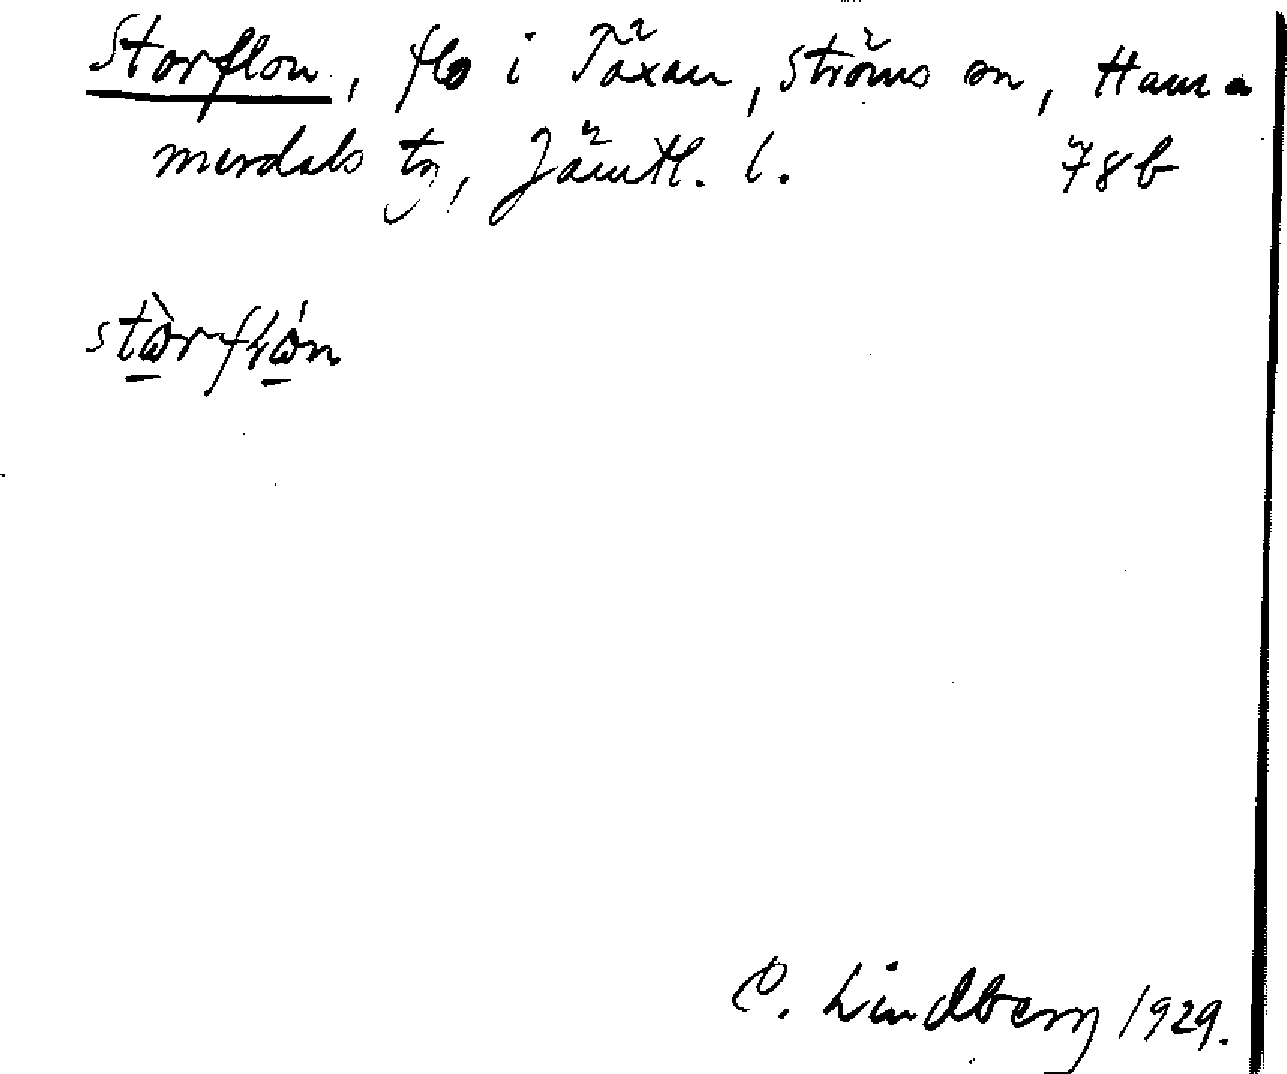 Storflon, flo i Täxan, Ströms sn, Ham-
merdals tg, Jämtl. l. 78b
stòrflón
C. Lindberg 1929.